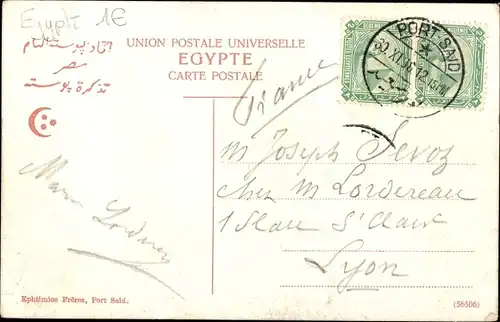 Egypte 1E
اتحاد بوسته عام
مصر
تذكرة بوسته
UNION POSTALE UNIVERSELLE
EGYPTE
CARTE POSTALE
PORT-SAID
France
M Joseph Sevoz
chez M Lordereau
1 Place St Clair
Lyon
Ephtimios Frères, Port Said.
(56506)